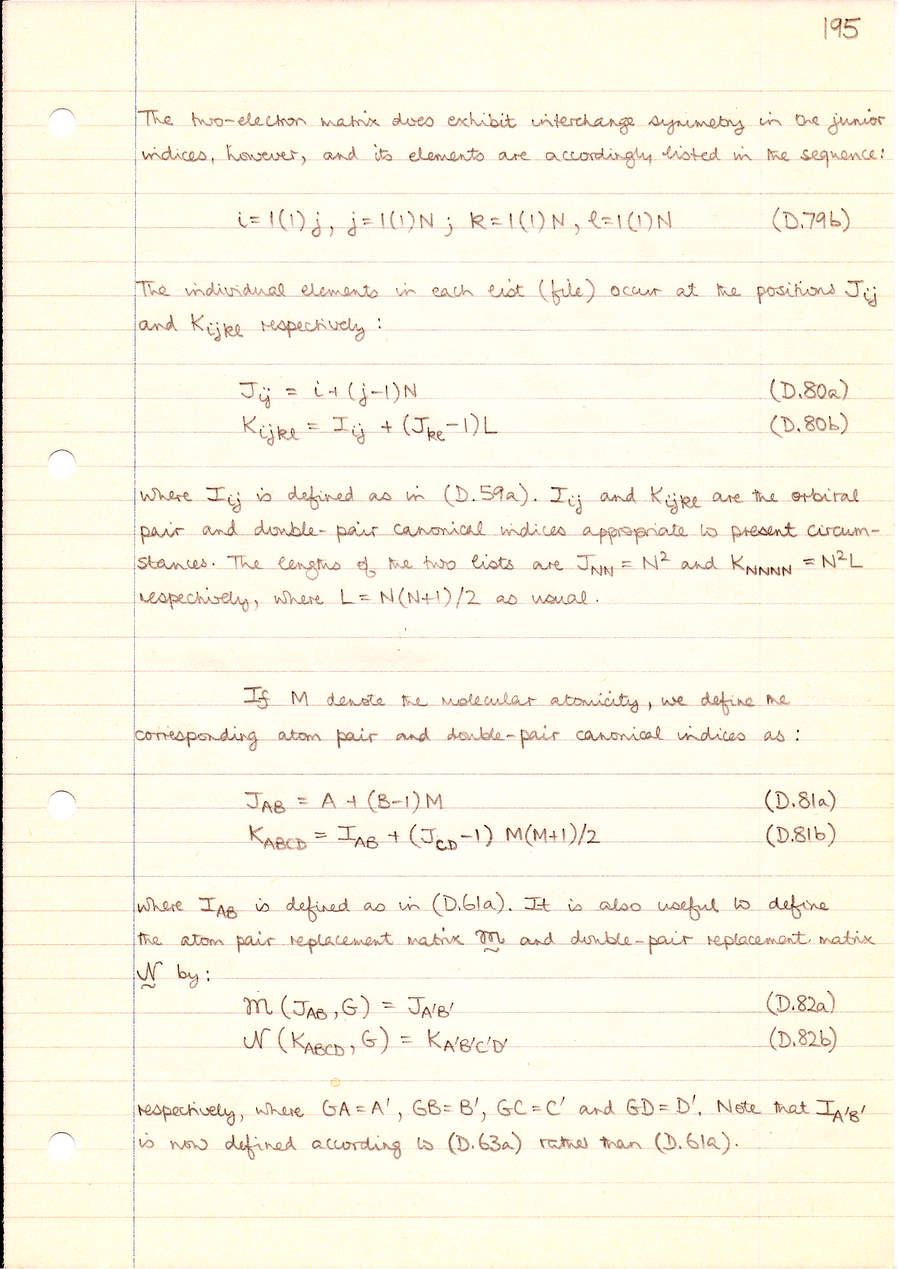 195
The two-electron matrix does exhibit interchange symmetry in the junior
indices, however, and its elements are accordingly listed in the sequence:
i=1(1)j, j=1(1)N; k=1(1)N, l=1(1)N (D.79b)
The individual elements in each list (file) occur at the positions J_ij
and K_ijkl respectively:
J_ij = i+(j-1)N (D.80a)
K_ijkl = I_ij + (J_kl-1)L (D.80b)
where I_ij is defined as in (D.59a). I_ij and K_ijkl are the orbital
pair and double-pair canonical indices appropriate to present circum-
stances. The lengths of the two lists are J_NN = N² and K_NNNN = N²L
respectively, where L = N(N+1)/2 as usual.
If M denote the molecular atomicity, we define the
corresponding atom pair and double-pair canonical indices as:
J_AB = A + (B-1)M (D.81a)
K_ABCD = I_AB + (J_CD-1) M(M+1)/2 (D.81b)
where I_AB is defined as in (D.61a). It is also useful to define
the atom pair replacement matrix 𝓜 and double-pair replacement matrix
𝒩 by:
𝓜 (J_AB, G) = J_A'B' (D.82a)
𝒩 (K_ABCD, G) = K_A'B'C'D' (D.82b)
respectively, where GA=A', GB=B', GC=C' and GD=D'. Note that I_A'B'
is now defined according to (D.63a) rather than (D.61a).